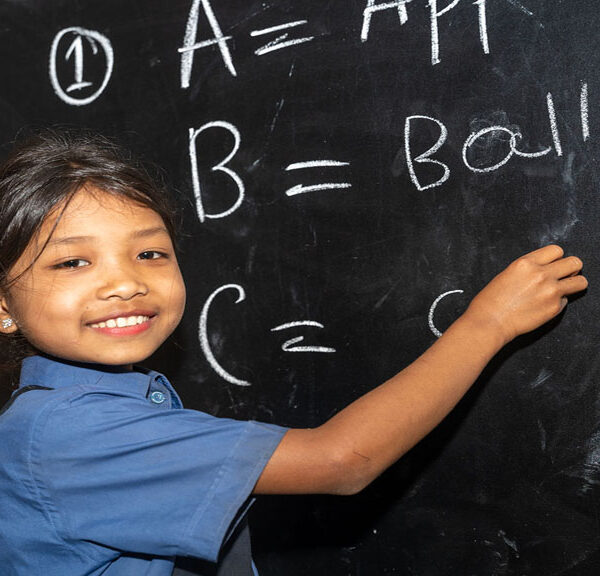 ① A = App
B = Ball
C = C